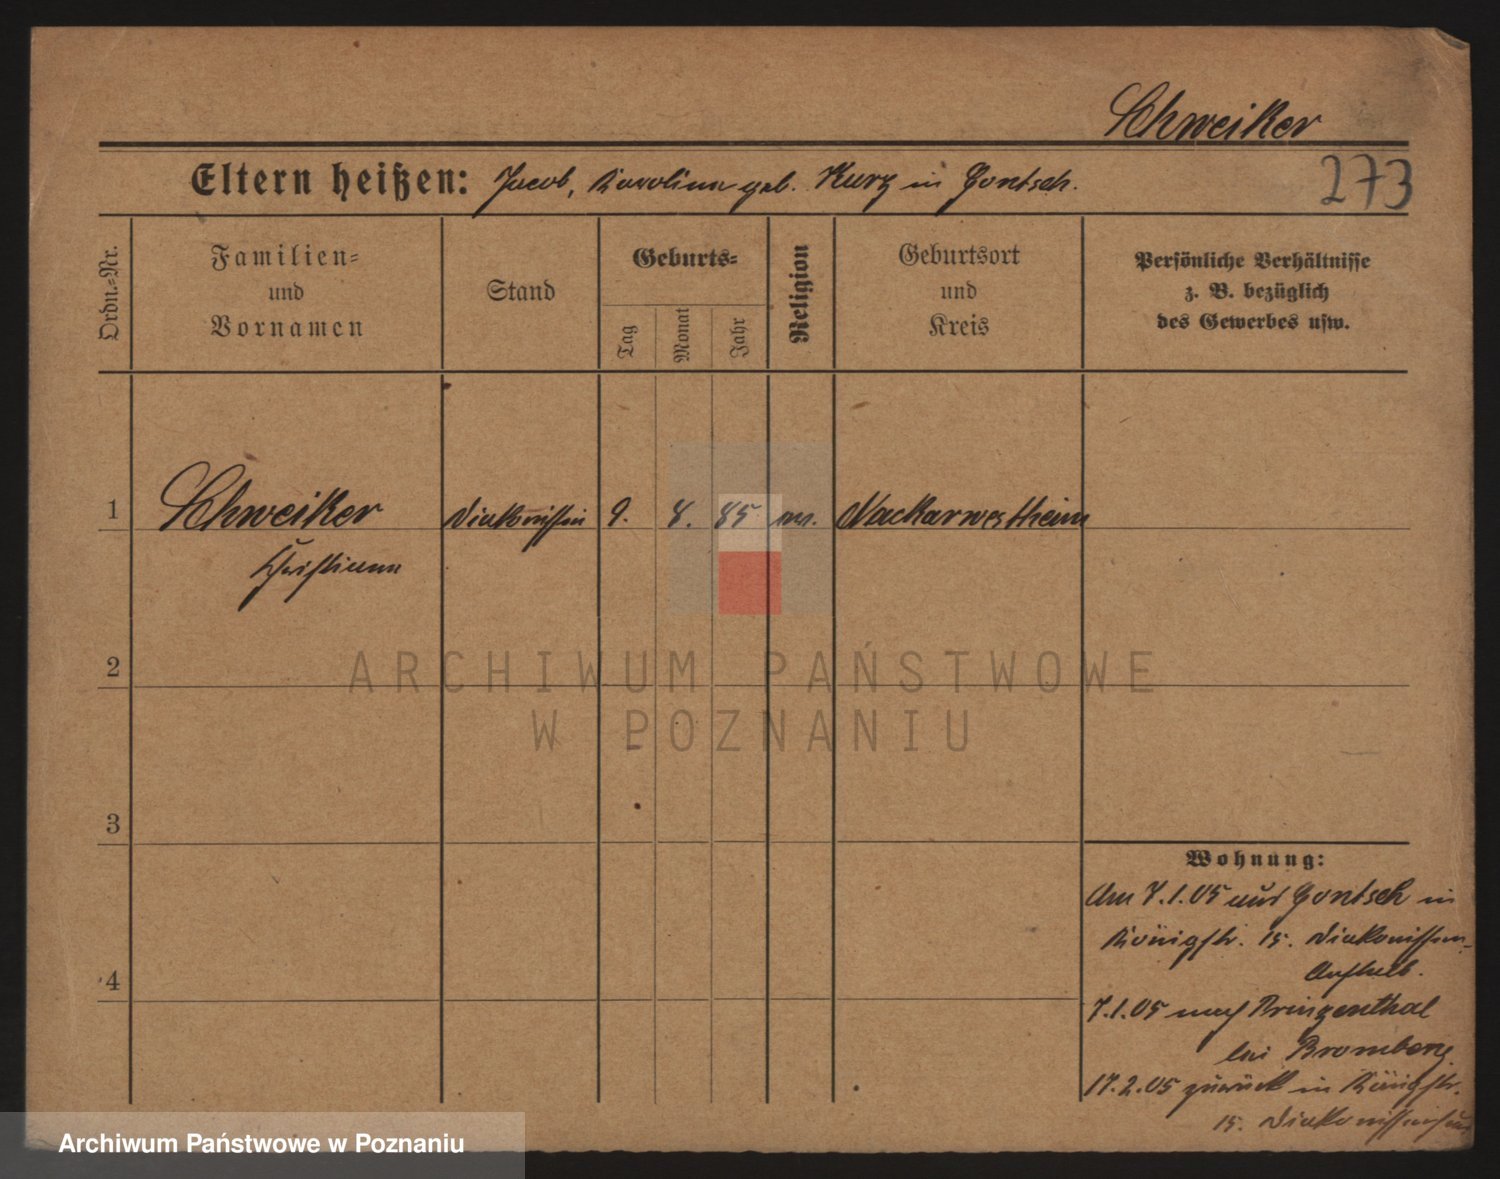 Schweiker
Eltern heißen: Jacob, Karolina geb. Kurz in Gontsch.
273
Ordn.-Nr.
Familien- und Vornamen
Stand
Geburts-
Tag
Monat
Jahr
Religion
Geburtsort und Kreis
Persönliche Verhältnisse
z. B. bezüglich
des Gewerbes usw.
1 Schweiker Diakonissin 9. 8. 85 ev. Neckarwestheim
Christiane
2
3
4
Wohnung:
Am 7.1.05 aus Gontsch in
Königstr. 15. Diakonissen-
Anstalt.
7.1.05 nach Prinzenthal
bei Bromberg.
17.2.05 zurück in Königstr.
15. Diakonissenhaus
ARCHIWUM PAŃSTWOWE
W POZNANIU
Archiwum Państwowe w Poznaniu